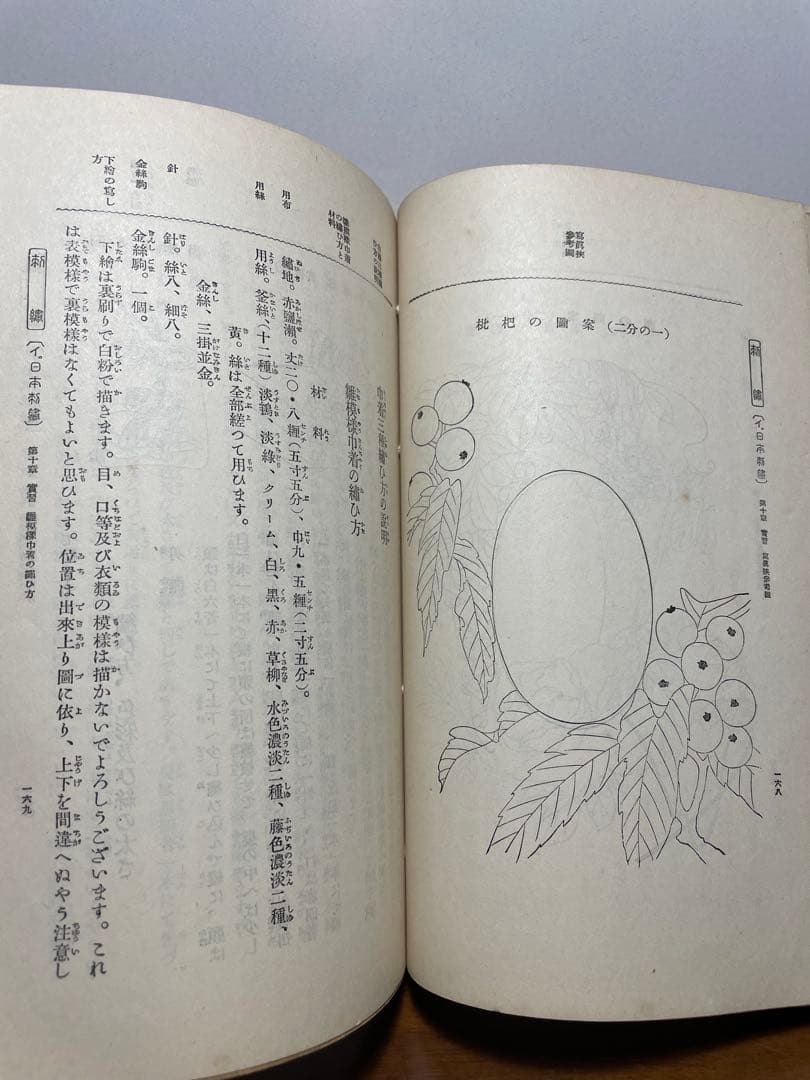 刺繡 (イ.日本刺繡) 第十章 實習 寫眞挾參考圖
一六八
寫眞挾
參考圖
枇杷の圖案(二分の一)
巾着三種繡ひ方の説明
雛模樣巾着の繡ひ方
雛模樣巾着
の繡ひ方と
材料
材料
用布
繡地。赤鹽瀨。丈二〇・八糎(五寸五分)、巾九・五糎(二寸五分)。
用絲
用絲。釜絲、(十二種)淡鴇、淡綠、クリーム、白、黑、赤、草柳、水色濃淡二種、藤色濃淡二種、
黃。絲は全部縒つて用ひます。
金絲、三掛並金。
針
針。絲八、細八。
金絲駒
金絲駒。一個。
下繪の寫し
方
下繪は裏刷りで白粉で描きます。目、口等及び衣類の模樣は描かないでよろしうございます。これ
は表模樣で裏模樣はなくてもよいと思ひます。位置は出來上り圖に依り、上下を間違へぬやう注意し
刺繡 (イ.日本刺繡) 第十章 實習 雛模樣巾着の繡ひ方
一六九